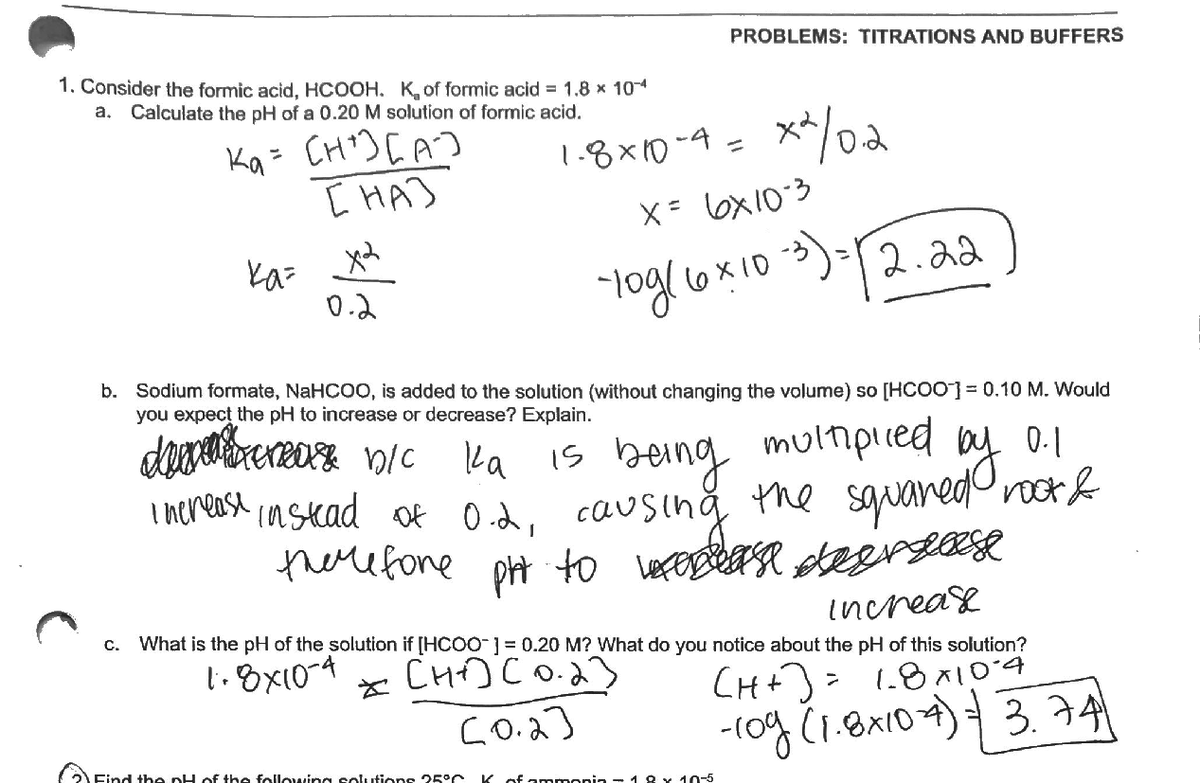 PROBLEMS: TITRATIONS AND BUFFERS
1. Consider the formic acid, HCOOH. Kₐ of formic acid = 1.8 × 10⁻⁴
a. Calculate the pH of a 0.20 M solution of formic acid.
Ka = [H⁺][A⁻] / [HA]
1.8×10⁻⁴ = x²/0.2
x = 6×10⁻³
Ka = x² / 0.2
-log(6×10⁻³) = 2.22
b. Sodium formate, NaHCOO, is added to the solution (without changing the volume) so [HCOO⁻] = 0.10 M. Would
you expect the pH to increase or decrease? Explain.
b/c Ka is being multiplied by 0.1
increase instead of 0.2, causing the squared root &
therefore pH to
increase
c. What is the pH of the solution if [HCOO⁻] = 0.20 M? What do you notice about the pH of this solution?
1.8×10⁻⁴ = [H+][0.2] / [0.2]
[H+] = 1.8×10⁻⁴
-log(1.8×10⁻⁴) = 3.74
2. Find the pH of the following solutions 25°C K of ammonia = 1.8 × 10⁻⁵